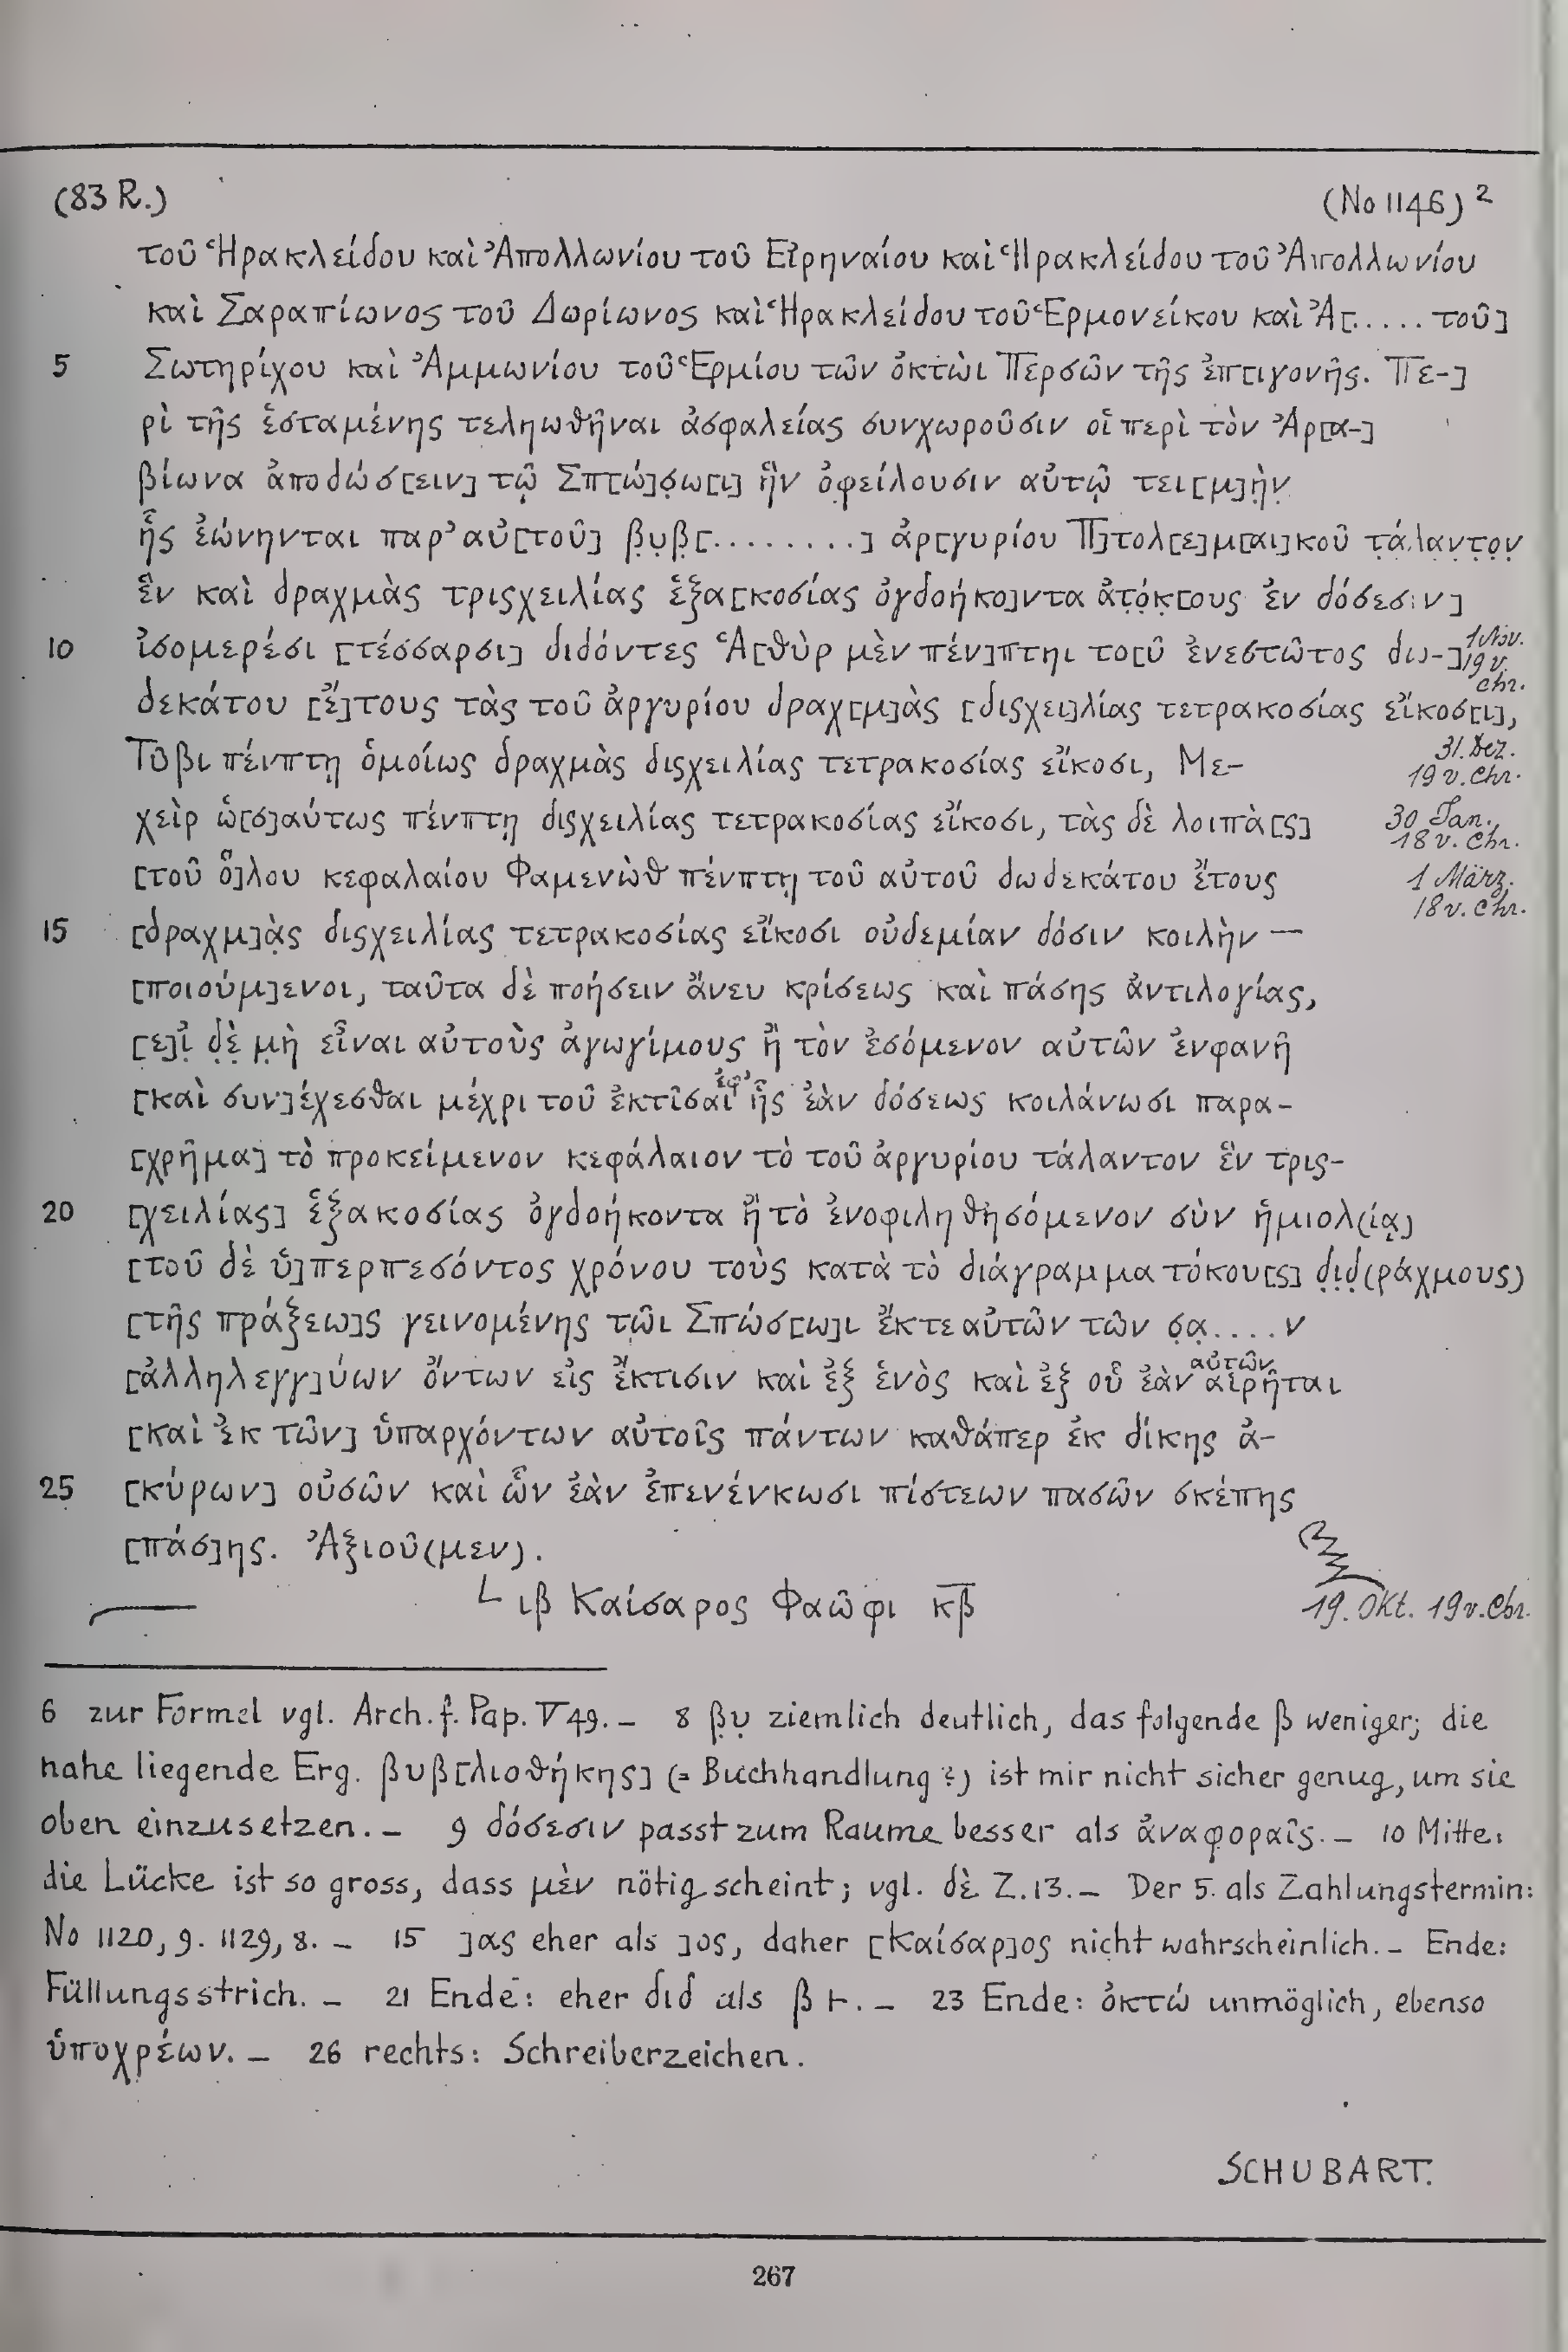 (83 R.) (No 1146) 2
τοῦ Ἡρακλείδου καὶ Ἀπολλωνίου τοῦ Εἰρηναίου καὶ Ἡρακλείδου τοῦ Ἀπολλωνίου
καὶ Σαραπίωνος τοῦ Δωρίωνος καὶ Ἡρακλείδου τοῦ Ἑρμονείκου καὶ Ἀ[..... τοῦ]
5 Σωτηρίχου καὶ Ἀμμωνίου τοῦ Ἑρμίου τῶν ὀκτὼι Περσῶν τῆς ἐπ[ιγονῆς. Πε-]
ρὶ τῆς ἑσταμένης τεληωθῆναι ἀσφαλείας συνχωροῦσιν οἱ περὶ τὸν Ἀρ[α-]
βίωνα ἀποδώσ[ειν] τῷ Σπ[ώ]σ̣ω[ι] ἣν ὀφείλουσιν αὐτῷ τει[μ]ὴ̣ν̣
ἧς ἐώνηνται παρ' αὐ[τοῦ] β̣υ̣β̣[........] ἀρ[γυρίου Π]τολ[ε]μ[αι]κοῦ τ̣ά̣λ̣α̣ν̣τ̣ο̣ν̣
ἓν καὶ δραχμὰς τρισχειλίας ἑξα[κοσίας ὀγδοήκο]ντα ἀτ̣ό̣κ̣[ους ἐν δόσεσιν]
10 ἰσομερέσι [τέσσαρσι] διδόντες Ἁ[θὺρ μὲν πέν]πτηι το[ῦ ἐνεστῶτος δω-] 1 Nov. 19 v. Chr.
δεκάτου [ἔ]τους τὰς τοῦ ἀργυρίου δραχ[μ]ὰς [δισχει]λίας τετρακοσίας εἴκοσ[ι],
Τῦβι πένπτῃ ὁμοίως δραχμὰς δισχειλίας τετρακοσίας εἴκοσι, Με- 31. Dez. 19 v. Chr.
χεὶρ ὡ[σ]αύτως πένπτῃ δισχειλίας τετρακοσίας εἴκοσι, τὰς δὲ λοιπὰ[ς] 30 Jan. 18 v. Chr.
[τοῦ ὅ]λου κεφαλαίου Φαμενὼθ πένπτῃ τοῦ αὐτοῦ δωδεκάτου ἔτους 1 März 18 v. Chr.
15 [δραχμ]ὰ̣ς δισχειλίας τετρακοσίας εἴκοσι οὐδεμίαν δόσιν κοιλὴν —
[ποιούμ]ενοι, ταῦτα δὲ ποήσειν ἄνευ κρίσεως καὶ πάσης ἀντιλογίας,
[ε]ἰ̣ δ̣ὲ̣ μ̣ὴ εἶναι αὐτοὺς ἀγωγίμους ἢ τὸν ἐσόμενον αὐτῶν ἐνφανῆ
[καὶ συν]έχεσθαι μέχρι τοῦ ἐκτῖσαι ἐφ' ἧς ἐὰν δόσεως κοιλάνωσι παρα-
[χρῆμα] τὸ προκείμενον κεφάλαιον τὸ τοῦ ἀργυρίου τάλαντον ἓν τρισ-
20 [χειλίας] ἑξακοσίας ὀγδοήκοντα ἢ τὸ ἐνοφιληθησόμενον σὺν ἡμιολ(ίᾳ)
[τοῦ δὲ ὑ]περπεσόντος χρόνου τοὺς κατὰ τὸ διάγραμμα τόκου[ς] δ̣ι̣δ̣(ράχμους)
[τῆς πράξεω]ς γεινομένης τῶι Σπώσ[ω]ι ἔκ τε αὐτῶν τῶν σ̣α̣....ν
[ἀλληλεγγ]ύων ὄντων εἰς ἔκτισιν καὶ ἐξ ἑνὸς καὶ ἐξ οὗ ἐὰν αὐτῶν αἱρῆται
[καὶ ἐκ τῶν] ὑπαρχόντων αὐτοῖς πάντων καθάπερ ἐκ δίκης ἀ-
25 [κύρων] οὐσῶν καὶ ὧν ἐὰν ἐπενένκωσι πίστεων πασῶν σκέπης
[πάσ]ης. Ἀξιοῦ(μεν).
L ιβ Καίσαρος Φαῶφι κ̅β̅ 19. Okt. 19 v. Chr.
6 zur Formel vgl. Arch. f. Pap. V 49. – 8 β̣υ̣ ziemlich deutlich, das folgende β weniger; die
nahe liegende Erg. βυβ[λιοθήκης] (= Buchhandlung?) ist mir nicht sicher genug, um sie
oben einzusetzen. – 9 δόσεσιν passt zum Raume besser als ἀναφοραῖς. – 10 Mitte:
die Lücke ist so gross, dass μὲν nötig scheint; vgl. δὲ Z. 13. – Der 5. als Zahlungstermin:
No 1120, 9. 1129, 8. – 15 ]ας eher als ]ος, daher [Καίσαρ]ος nicht wahrscheinlich. – Ende:
Füllungsstrich. – 21 Ende: eher διδ als β 𐅂. – 23 Ende: ὀκτώ unmöglich, ebenso
ὑποχρέων. – 26 rechts: Schreiberzeichen.
SCHUBART.
267